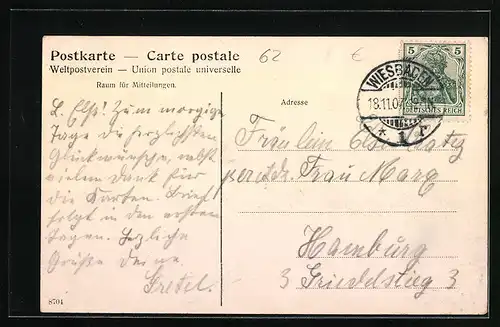 Postkarte — Carte postale
Weltpostverein — Union postale universelle
Raum für Mitteilungen.
62
€
5 5
DEUTSCHES REICH
WIESBADEN
18.11.07
* 1 r
Adresse
L. Else! Zum morgigen
Tage die herzlichsten
Glückwünsche, nebst
vielem Dank für
die Karten. Brief
folgt in den ersten
Tagen. Herzliche
Grüße deine
Gretel.
Fräulein Else
Frau Marg
Hamburg
3 Grindelstieg 3
8704